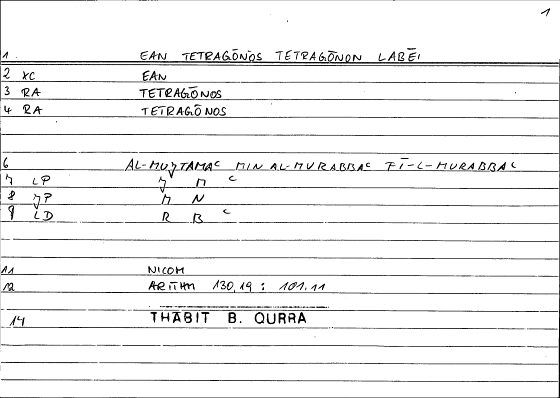 1
1. EAN TETRAGŌNOS TETRAGŌNON LABĒI
2 XC EAN
3 RA TETRAGŌNOS
4 RA TETRAGŌNOS
6 AL-MUŊTAMAᶜ MIN AL-MURABBAᶜ FĪ-L-MURABBAᶜ
7 LP Ŋ M ᶜ
8 ŊP M N
9 LD R B ᶜ
11 NICOM
12 ARITHM 130,19 : 101.11
14 THĀBIT B. QURRA